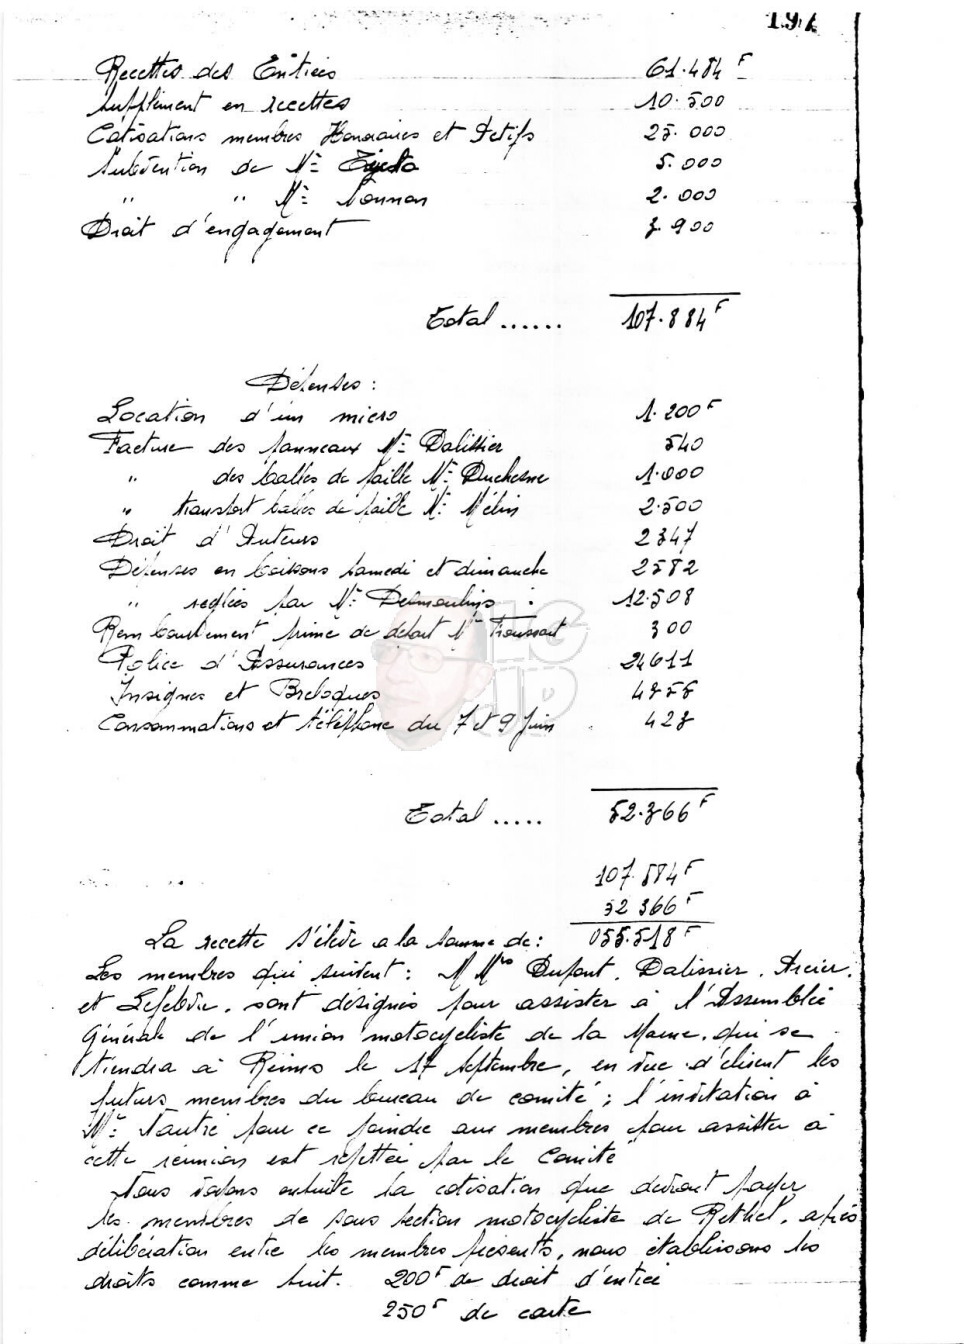 197
Recettes des Entrées 61.484 F
Supplément en recettes 10.500
Cotisations membres Honoraires et Actifs 25.000
Subvention de Mr 5.000
" " Mr Nonnon 2.000
Droit d'engagement 3 900
Total ...... 107.884 F
Dépenses :
Location d'un micro 1.200 F
Facture des panneaux Mr Dalissier 540
" des balles de paille Mr Duchesne 1.000
" transport balles de paille Mr Mélin 2.500
Droit d'Auteurs 2347
Dépenses en boissons samedi et dimanche 2582
" réglées par Mr Desmoulins : 12.508
Remboursement prime de départ Mr Froussart 300
Police d'Assurances 24611
Insignes et Breloques 4355
Consommations et téléphone du 7 et 9 Juin 423
HG
JP
Total ..... 52.366 F
107.884 F
52 366 F
La recette s'élève a la somme de : 055.518 F
Les membres qui suivent : M Mrs Dupont, Dalissier, Arcier,
et Lefebvre, sont désignés pour assister à l'Assemblée
Générale de l'union motocycliste de la Marne, qui se
tiendra à Reims le 17 Septembre, en vue d'élirent les
futurs membres du bureau de comité ; l'invitation à
Mr pour ce joindre aux membres pour assister à
cette réunion est rejettée par le Comité
Nous votons ensuite la cotisation que devront payer
les membres de sous section motocycliste de Rethel, après
délibération entre les membres présents, nous établissons les
droits comme suit. 200 F de droit d'entrée
250 F de carte